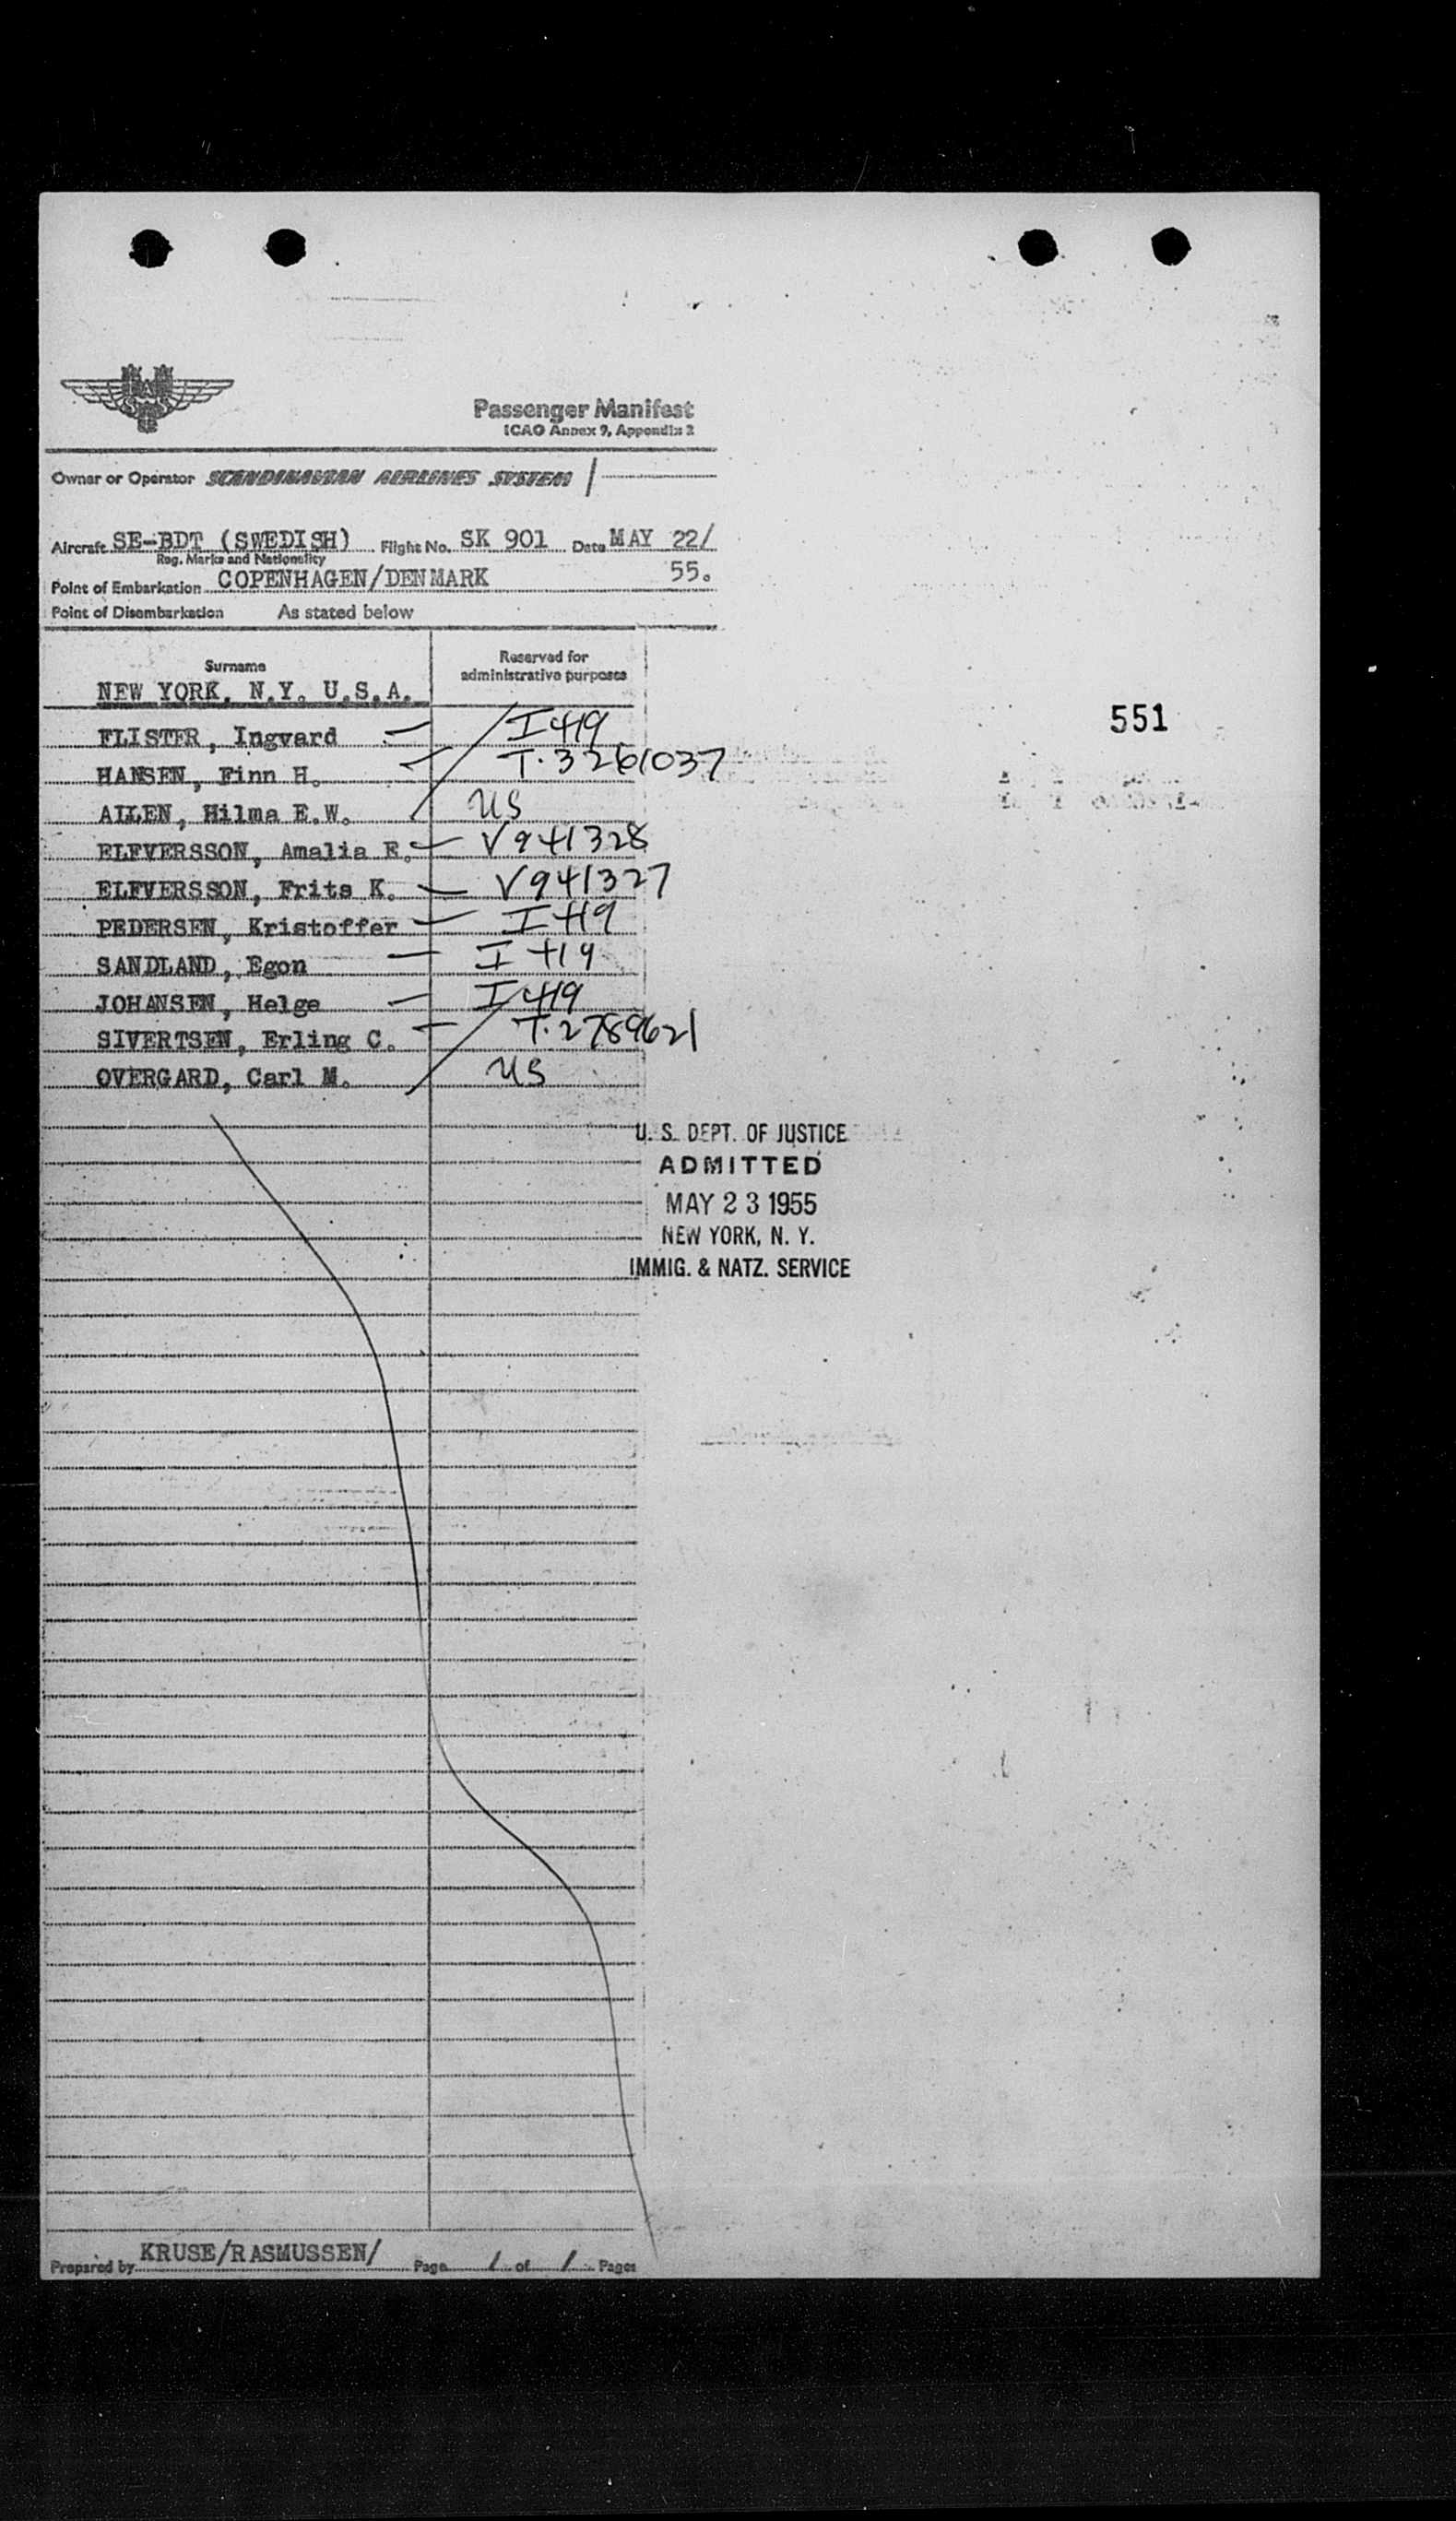 Passenger Manifest
ICAO Annex 9, Appendix 2
Owner or Operator SCANDINAVIAN AIRLINES SYSTEM /
Aircraft SE-BDT (SWEDISH) Flight No. SK 901 Date MAY 22/
Reg. Marks and Nationality
Point of Embarkation COPENHAGEN/DENMARK 55.
Point of Disembarkation As stated below
Surname Reserved for administrative purposes
NEW YORK, N.Y. U.S.A.
551
FLISTER, Ingvard — I 419
HANSEN, Finn H. — T. 3261037
AILEN, Hilma E.W. / US
ELFVERSSON, Amalia E. — V941328
ELFVERSSON, Frits K. — V941327
PEDERSEN, Kristoffer — I 419
SANDLAND, Egon — I 419
JOHANSEN, Helge — I 419
SIVERTSEN, Erling C. — T. 2789621
OVERGARD, Carl M. / US
U. S. DEPT. OF JUSTICE
ADMITTED
MAY 23 1955
NEW YORK, N. Y.
IMMIG. & NATZ. SERVICE
Prepared by KRUSE/RASMUSSEN/ Page 1 of 1 Pages